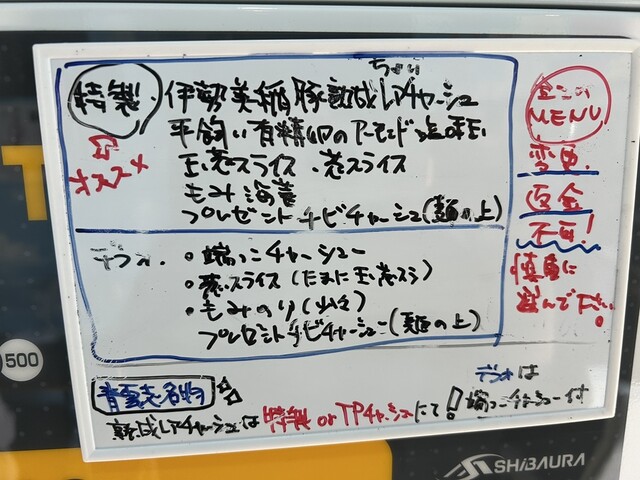 特製
オススメ
ちょい
伊勢美稲豚熟成レアチャーシュー
平飼い有精卵のアーモンド塩味玉
玉葱スライス、葱スライス
もみ海苔
プレゼントチビチャーシュー(麺の上)
デフォ.
・端っこチャーシュー
・葱スライス(たまに玉葱スラ)
・もみのり(少々)
プレゼントチビチャーシュー(麺の上)
全ての
MENU
変更、
返金
不可!
慎重に
選んで下さい。
500
青雲志名物
熟成レアチャーシューは特製 or TPチャーシューにて!
デフォは
端っこチャーシュー付
SHiBAURA